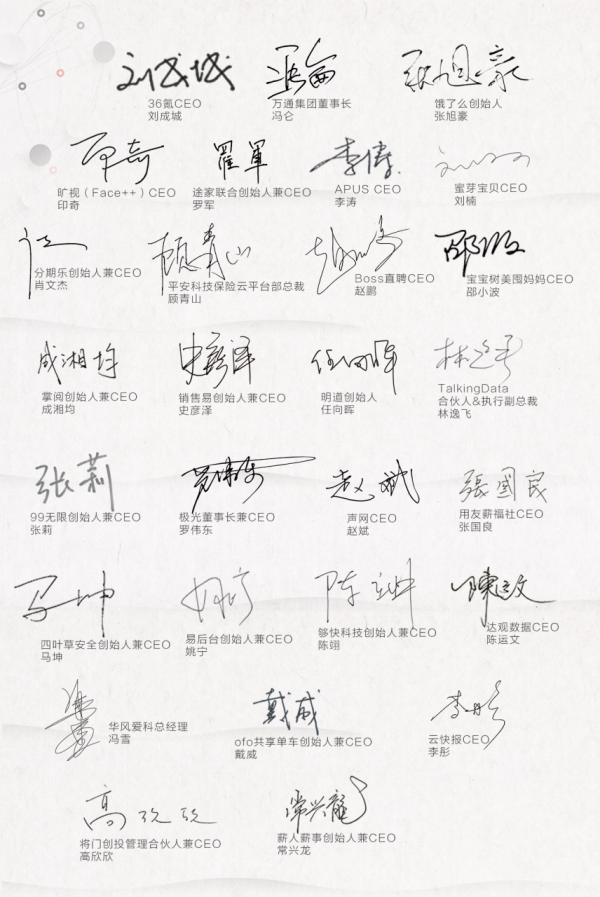 刘成城
36氪CEO
刘成城
冯仑
万通集团董事长
冯仑
张旭豪
饿了么创始人
张旭豪
印奇
旷视（Face++）CEO
印奇
罗军
途家联合创始人兼CEO
罗军
李涛
APUS CEO
李涛
蜜芽宝贝CEO
刘楠
分期乐创始人兼CEO
肖文杰
顾青山
平安科技保险云平台部总裁
顾青山
Boss直聘CEO
赵鹏
宝宝树美囤妈妈CEO
邵小波
成湘均
掌阅创始人兼CEO
成湘均
史彦泽
销售易创始人兼CEO
史彦泽
任向晖
明道创始人
任向晖
林逸飞
TalkingData
合伙人&执行副总裁
林逸飞
张莉
99无限创始人兼CEO
张莉
极光董事长兼CEO
罗伟东
赵斌
声网CEO
赵斌
用友薪福社CEO
张国良
马坤
四叶草安全创始人兼CEO
马坤
姚宁
易后台创始人兼CEO
姚宁
够快科技创始人兼CEO
陈翊
陳运文
达观数据CEO
陈运文
华风爱科总经理
冯雪
戴威
ofo共享单车创始人兼CEO
戴威
李彤
云快报CEO
李彤
高欣欣
将门创投管理合伙人兼CEO
高欣欣
常兴龍
薪人薪事创始人兼CEO
常兴龙